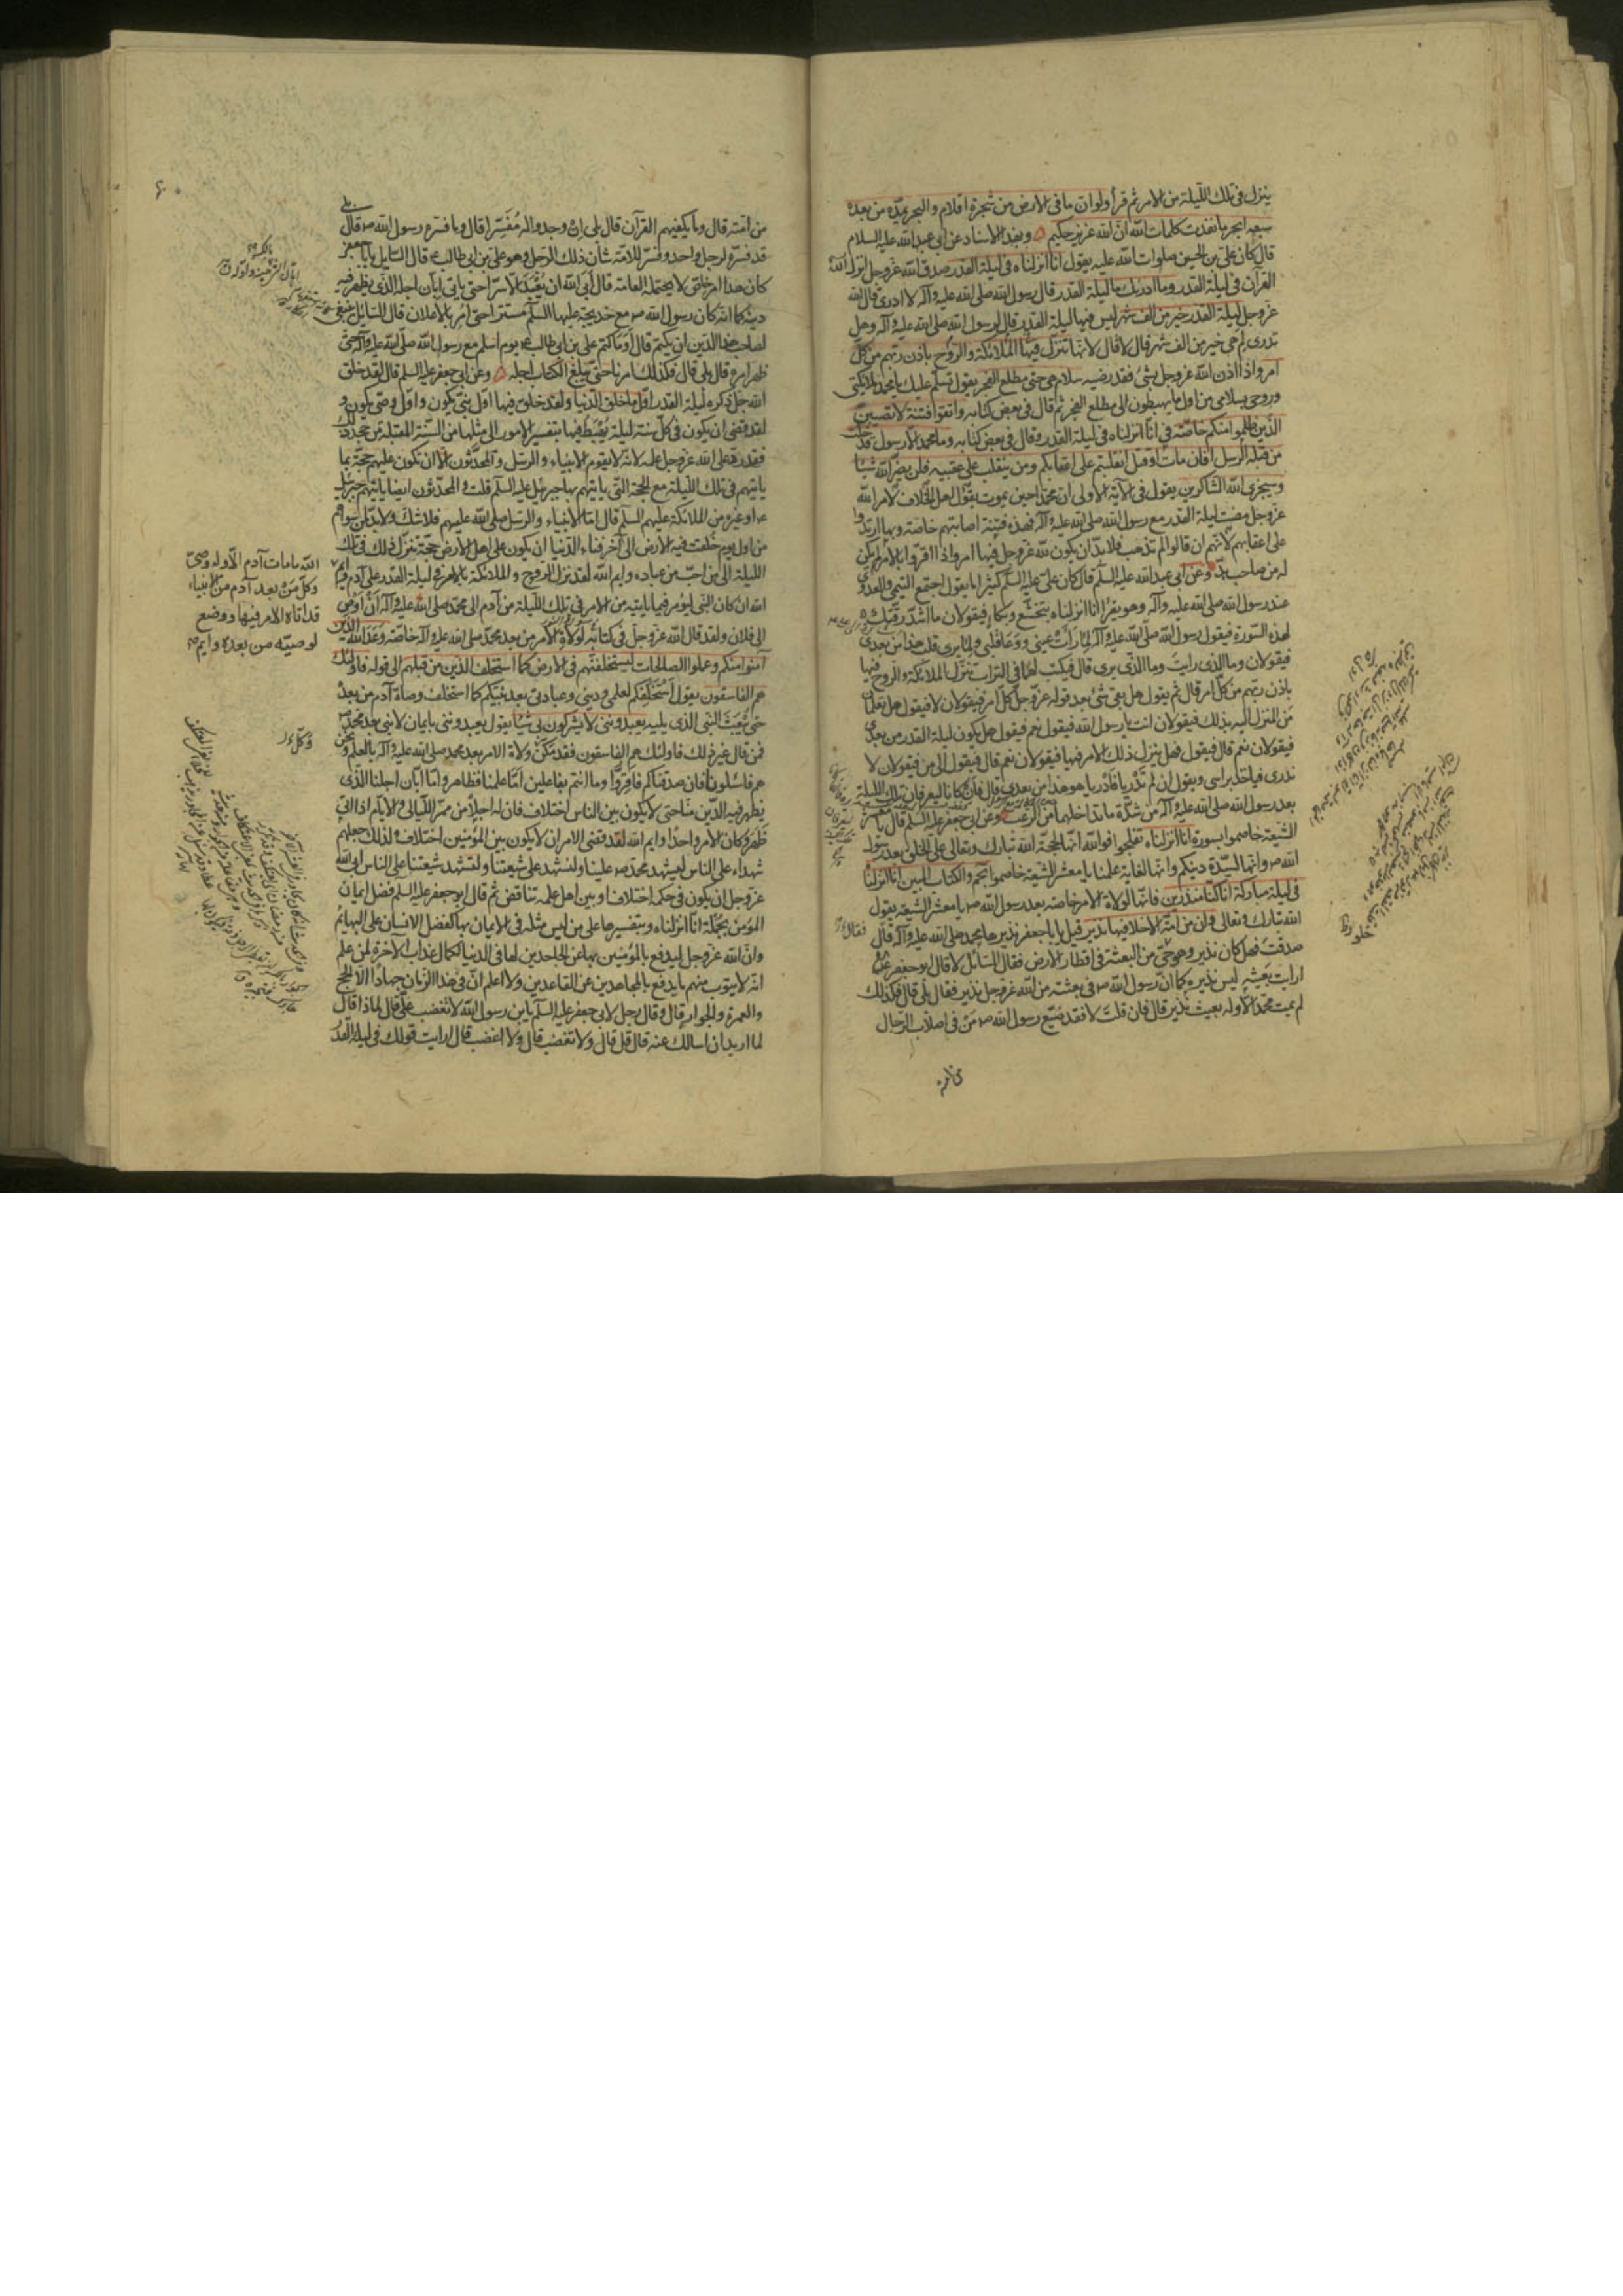 ينزل في تلك الليلة من الامر ثم قرأ ولو ان ما في الارض من شجرة اقلام والبحر يمده من بعده
سبعة ابحر ما نفدت كلمات الله ان الله عزيز حكيم وبهذا الاسناد عن ابي عبد الله عليه السلام
قال كان علي بن الحسين صلوات الله عليه يقول انا انزلناه في ليلة القدر صدق الله عز وجل انزل الله
القرآن في ليلة القدر وما ادريك ما ليلة القدر قال رسول الله صلى الله عليه وآله لا ادري قال الله
عز وجل ليلة القدر خير من الف شهر ليس فيها ليلة القدر قال لرسول الله صلى الله عليه وآله وهل
تدري لم هي خير من الف شهر قال لا قال لانها تنزل فيها الملائكة والروح باذن ربهم من كل
امر واذا اذن الله عز وجل بشئ فقد رضيه سلام هي حتى مطلع الفجر يقول تسلم عليك يا محمد ملائكتي
وروحي بسلامي من اول ما يهبطون الى مطلع الفجر ثم قال في بعض كتابه واتقوا فتنة لا تصيبن
الذين ظلموا منكم خاصة في انا انزلناه في ليلة القدر وقال في بعض كتابه وما محمد الا رسول قد خلت
من قبله الرسل افان مات او قتل انقلبتم على اعقابكم ومن ينقلب على عقبيه فلن يضر الله شيئا
وسيجزي الله الشاكرين يقول في الآية الاولى ان محمدا حين يموت يقول اهل الخلاف لامر الله
عز وجل مضت ليلة القدر مع رسول الله صلى الله عليه وآله فهذه فتنة اصابتهم خاصة وبها ارتدوا
على اعقابهم لانهم ان قالوا لم تذهب فلا بد ان يكون لله عز وجل فيها امر واذا اقروا بالامر لم يكن
له من صاحب بد وعن ابي عبد الله عليه السلم قال كان علي عليه السلم كثيرا ما يقول اجتمع التيمي والعدوي
عند رسول الله صلى الله عليه وآله وهو يقرأ انا انزلناه بتخشع وبكاء فيقولان ما اشد رقتك
لهذه السورة فيقول رسول الله صلى الله عليه وآله لما رأت عيني ووعا قلبي ولما يرى قلب هذا من بعدي
فيقولان وما الذي رايت وما الذي يرى قال فيكتب لهما في التراب تنزل الملائكة والروح فيها
باذن ربهم من كل امر قال ثم يقول هل بقي شئ بعد قوله عز وجل كل امر فيقولان لا فيقول هل تعلمان
من المنزل اليه بذلك فيقولان انت يا رسول الله فيقول نعم فيقول هل يكون ليلة القدر من بعدي
فيقولان نعم قال فيقول فهل ينزل ذلك الامر فيها فيقولان نعم قال فيقول الى من فيقولان لا
ندري فياخذ براسي ويقول ان لم تدريا فادريا هو هذا من بعدي قال فان كانا ليعرفان تلك الليلة
بعد رسول الله صلى الله عليه وآله من شدة ما تداخلهما من الرعب وعن ابي جعفر عليه السلم قال يا معشر
الشيعة خاصموا بسورة انا انزلناه تفلحوا فوالله انها لحجة الله تبارك وتعالى على الخلق بعد رسول
الله ص وانها لسيدة دينكم وانها لغاية علمنا يا معشر الشيعة خاصموا بحم والكتاب المبين انا انزلناه
في ليلة مباركة انا كنا منذرين فانها لولاة الامر خاصة بعد رسول الله ص يا معشر الشيعة يقول
الله تبارك وتعالى وان من امة الا خلا فيها نذير قيل يا با جعفر نذيرها محمد صلى الله عليه وآله قال
صدقت فهل كان نذير وهو حي من البعثة في اقطار الارض فقال السائل لا قال ابو جعفر ع
ارايت بعيثه ليس نذيره كما ان رسول الله ص في بعثته من الله عز وجل نذير فقال بلى قال فكذلك
لم يمت محمد الا وله بعيث نذير قال فان قلت لا فقد ضيع رسول الله ص من في اصلاب الرجال
من امته
فقال ۴
من امته قال وما يكفيهم القرآن قال بلى ان وجدوا له مفسرا قال وما فسره رسول الله ص قال بلى
قد فسره لرجل واحد وفسر للامة شان ذلك الرجل وهو علي بن ابي طالب ع قال السايل يا با جعفر
كان هذا امر خاص لا يحتمله العامة قال ابى الله ان يعبد الا سرا حتى ياتي ابان اجله الذي يظهر فيه
دينه كما انه كان رسول الله ص مع خديجة عليها السلم مستترا حتى امر بالاعلان قال السائل ينبغي
لصاحب هذا الدين ان يكتم قال او ما كتم علي بن ابي طالب ع يوم اسلم مع رسول الله صلى الله عليه وآله حتى
ظهر امره قال بلى قال فكذلك امرنا حتى يبلغ الكتاب اجله وعن ابي جعفر عليه السلم قال لقد خلق
الله جل ذكره ليلة القدر اول ما خلق الدنيا ولقد خلق فيها اول نبي يكون واول وصي يكون و
لقد قضى ان يكون في كل سنة ليلة يهبط فيها بتفسير الامور الى مثلها من السنة المقبلة من جحد ذلك
فقد رد على الله عز وجل علمه لانه لا يقوم الانبياء والرسل والمحدثون الا ان تكون عليهم حجة بما
ياتيهم في تلك الليلة مع الحجة التي ياتيهم بها جبرئيل عليه السلم قلت والمحدثون ايضا ياتيهم جبرئيل
ع او غيره من الملائكة عليهم السلم قال اما الانبياء والرسل صلى الله عليهم فلا شك ولا بد لمن سواهم
من اول يوم خلقت فيه الارض الى آخر فناء الدنيا ان يكون على اهل الارض حجة ينزل ذلك في تلك
الليلة الى من احب من عباده وايم الله لقد نزل الروح والملائكة بالامر في ليلة القدر على آدم وايم
الله ان كان النبي ليؤمر فيما ياتيه من الامر في تلك الليلة من آدم الى محمد صلى الله عليه وآله ان اوص
الى فلان ولقد قال الله عز وجل في كتابه لولاة الامر من بعد محمد صلى الله عليه وآله خاصة وعد الله الذين
آمنوا منكم وعملوا الصالحات ليستخلفنهم في الارض كما استخلف الذين من قبلهم الى قوله فاولئك
هم الفاسقون يقول استخلفكم لعلمي وديني وعبادتي بعد نبيكم كما استخلف وصاة آدم من بعده
حتى يبعث النبي الذي يليه يعبدونني لا يشركون بي شيئا يقول يعبدونني بايمان لا نبي بعد محمد ص
فمن قال غير ذلك فاولئك هم الفاسقون فقد مكن ولاة الامر بعد محمد صلى الله عليه وآله بالعلم ونحن
هم فاسئلونا فان صدقناكم فاقروا وما انتم بفاعلين اما علمنا فظاهر واما ابان اجلنا الذي
يظهر فيه الدين منا حتى لا يكون بين الناس اختلاف فان له اجلا من ممر الليالي والايام اذا اتى
ظهر وكان الامر واحدا وايم الله لقد قضى الامر ان لا يكون بين المؤمنين اختلاف ولذلك جعلهم
شهداء على الناس ليشهد محمد ص علينا ولنشهد على شيعتنا ولتشهد شيعتنا على الناس ابى الله
عز وجل ان يكون في حكمه اختلاف او بين اهل علمه تناقض ثم قال ابو جعفر عليه السلم فضل ايمان
المؤمن بجملة انا انزلناه وبتفسيرها على من ليس مثله في الايمان بها كفضل الانسان على البهائم
وان الله عز وجل ليدفع بالمؤمنين بها عن الجاحدين لها في الدنيا لكمال عذاب الآخرة لمن علم
انه لا يتوب منهم ما يدفع بالمجاهدين عن القاعدين ولا اعلم ان في هذا الزمان جهادا الا الحج
والعمرة والجوار قال وقال رجل لابي جعفر عليه السلم يا بن رسول الله لا تغضب علي قال لماذا قال
لما اريد ان اسالك عنه قال قل قال ولا تغضب قال ولا اغضب قال ارايت قولك في ليلة القدر
الله ما مات آدم الا وله وصي
وكل من بعد آدم من الانبياء
قد اتاه الامر فيها ووضع
لوصيه من بعده وايم